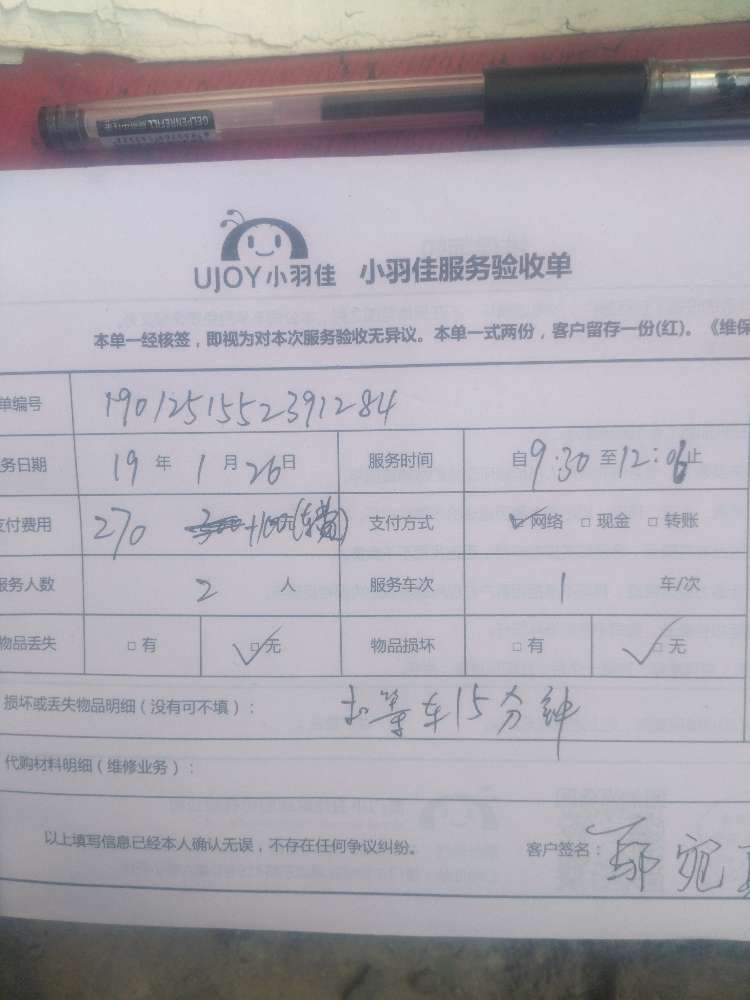 GELPENREFILL
UJOY小羽佳 小羽佳服务验收单
本单一经核签，即视为对本次服务验收无异议。本单一式两份，客户留存一份(红)。《维保
单编号 1901251552391284
务日期 19年1月26日 服务时间 自9:30至12:06止
支付费用 270 +100元(车费) 支付方式 ☑网络 □现金 □转账
服务人数 2人 服务车次 1 车/次
物品丢失 □有 ☑无 物品损坏 □有 ☑无
损坏或丢失物品明细（没有可不填）： 扣等车15分钟
代购材料明细（维修业务）：
以上填写信息已经本人确认无误，不存在任何争议纠纷。 客户签名： 鄢宛